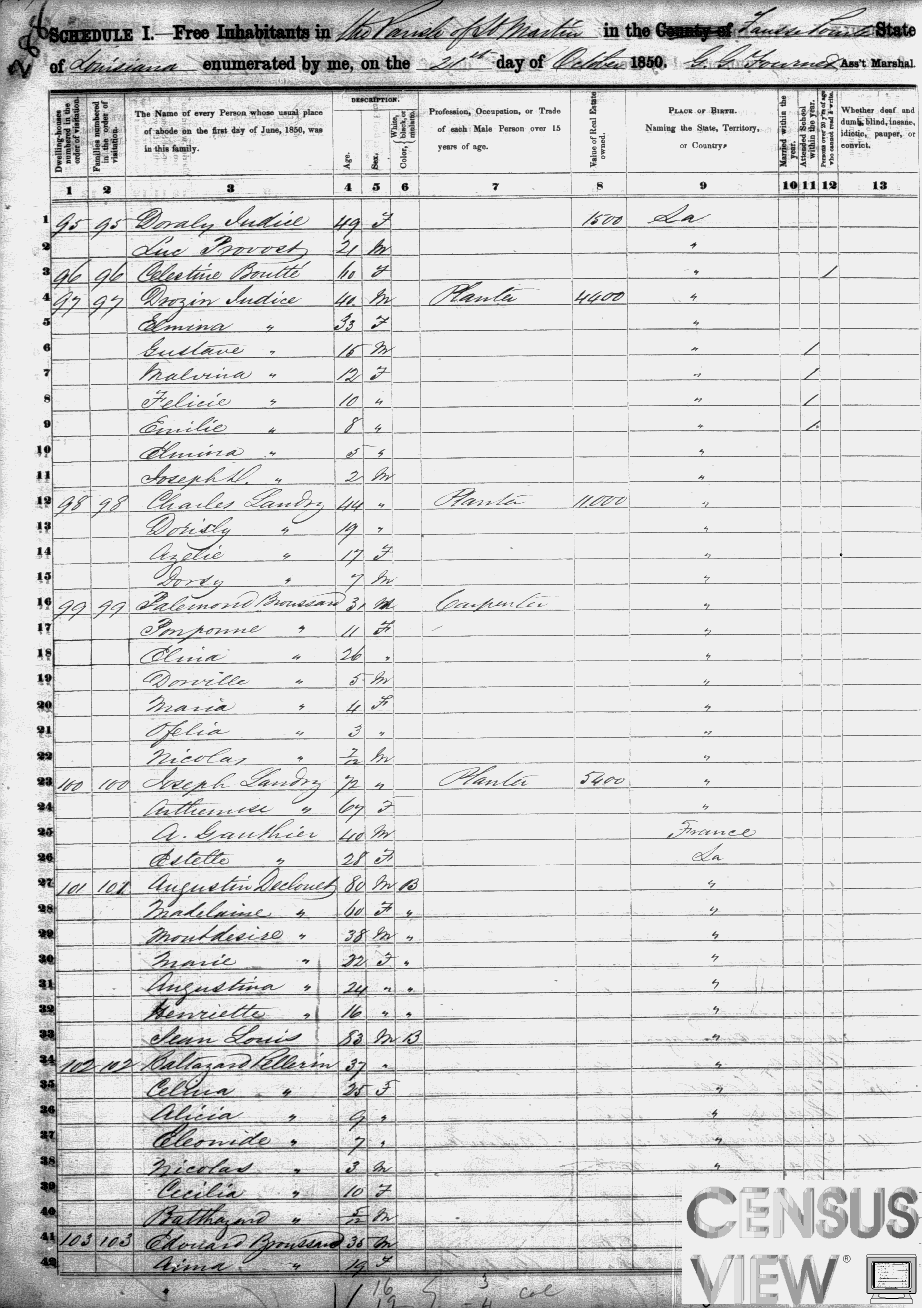 288
SCHEDULE I.—Free Inhabitants in the Parish of St Martin in the County of Fausse Pointe State
of Louisiana enumerated by me, on the 21st day of October 1850. Ass't Marshal.
Dwelling-houses numbered in the order of visitation. Families numbered in the order of visitation. The Name of every Person whose usual place of abode on the first day of June, 1850, was in this family. DESCRIPTION. Age. Sex. Color, White, black, or mulatto. Profession, Occupation, or Trade of each Male Person over 15 years of age. Value of Real Estate owned. PLACE OF BIRTH. Naming the State, Territory, or Country. Married within the year. Attended School within the year. Persons over 20 y'rs of age who cannot read & write. Whether deaf and dumb, blind, insane, idiotic, pauper, or convict.
1 2 3 4 5 6 7 8 9 10 11 12 13
1 95 95 Doraly Judice 49 F 1500 La
2 Luc Provost 21 M "
3 96 96 Celestine Boutté 60 F " /
4 97 97 Drozin Judice 40 M Planter 4400 "
5 Elmina " 33 F "
6 Gustave " 15 M " /
7 Malvina " 12 F " /
8 Felicie " 10 " " /
9 Emilie " 8 " " /
10 Elmina " 5 " "
11 Joseph D. " 2 M "
12 98 98 Charles Landry 44 " Planter 11000 "
13 Dorisly " 19 " "
14 Azelie " 17 F "
15 Dorsy " 7 M "
16 99 99 Palemond Broussard 31 M Carpenter "
17 Ponponne " 11 F "
18 Elina " 26 " "
19 Dorville " 5 M "
20 Maria " 4 F "
21 Ofelia " 3 " "
22 Nicolas " 7/12 M "
23 100 100 Joseph Landry 72 " Planter 5400 "
24 Arthemise " 67 F "
25 A. Gauthier 40 M France
26 Estelle " 28 F La
27 101 101 Augustin Declouet 80 M B "
28 Madelaine " 60 F " "
29 Montdesire " 38 M " "
30 Marie " 22 F " "
31 Augustina " 24 " " "
32 Henriette " 16 " " "
33 Jean Louis 83 M B "
34 102 102 Baltazard Pellerin 37 " "
35 Celina " 25 F "
36 Alicia " 9 " "
37 Eleonide " 7 " "
38 Nicolas " 3 M "
39 Cecilia " 10 F
40 Balthazard " 5/12 M
41 103 103 Edouard Broussard 35 M
42 Aima " 19 F
16 3 col
19 4
CENSUS
VIEW ®